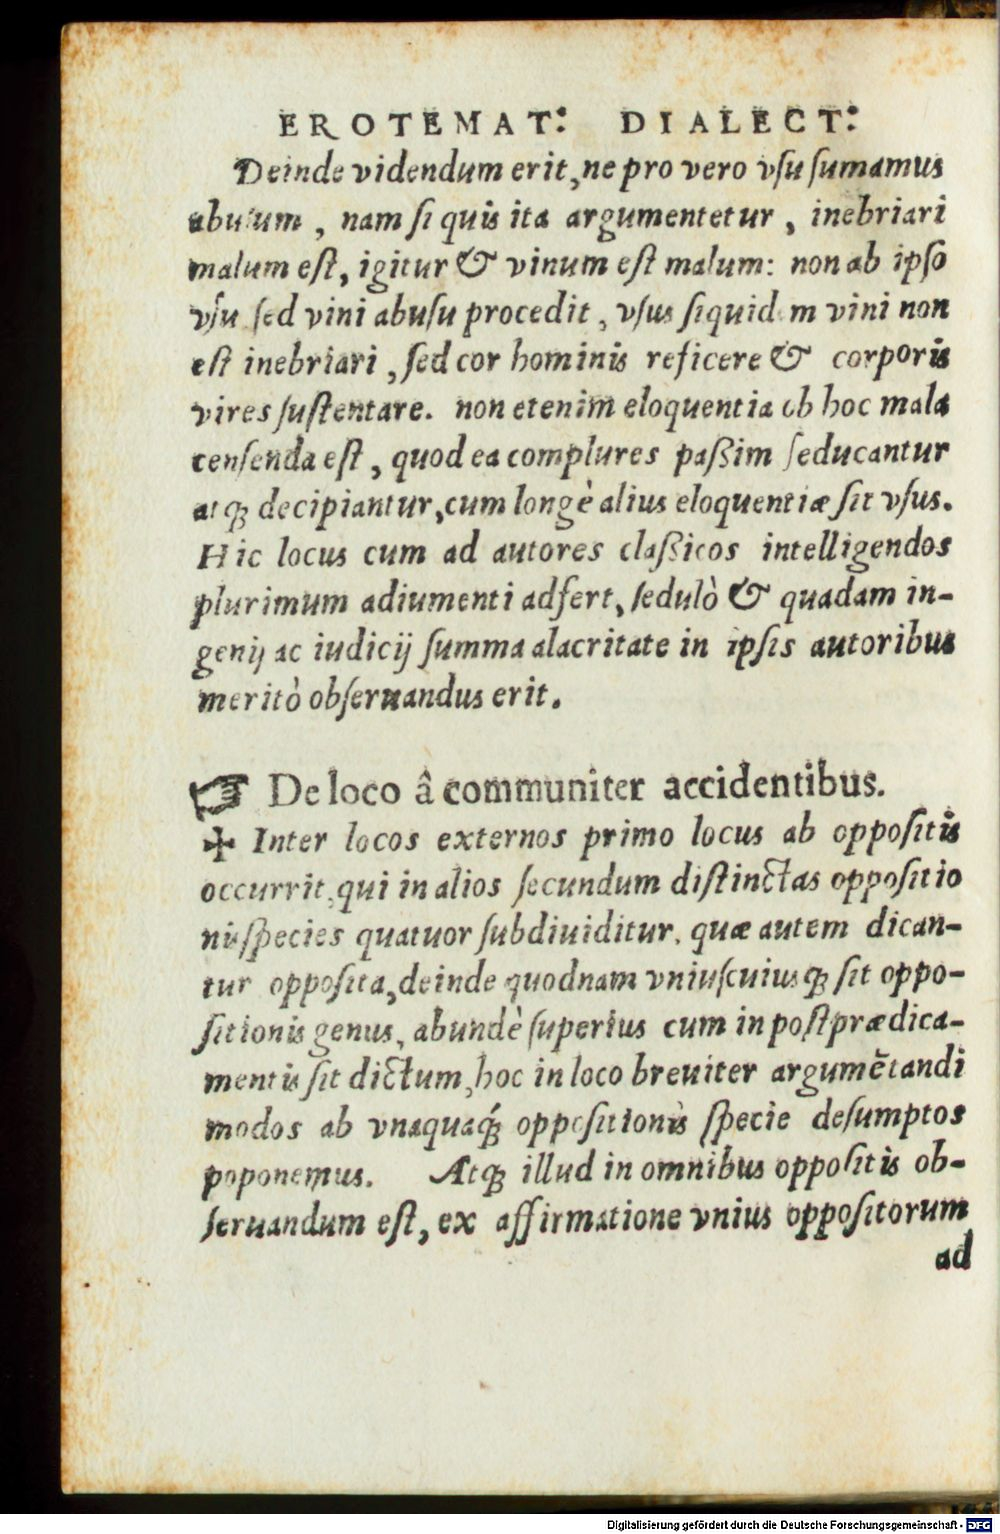 EROTEMAT: DIALECT:
Deinde videndum erit, ne pro vero vſu ſumamus
abuſum, nam ſi quis ita argumentetur, inebriari
malum eſt, igitur & vinum eſt malum: non ab ipſo
vſu ſed vini abuſu procedit, vſus ſiquidem vini non
eſt inebriari, ſed cor hominis reficere & corporis
vires ſuſtentare. non etenim eloquentia ob hoc mala
cenſenda eſt, quod ea complures paßim ſeducantur
atq; decipiantur, cum longè alius eloquentiæ ſit vſus.
Hic locus cum ad autores claßicos intelligendos
plurimum adiumenti adfert, ſedulò & quadam in-
genij ac iudicij ſumma alacritate in ipſis autoribus
meritò obſeruandus erit.
☞ De loco â communiter accidentibus.
✢ Inter locos externos primo locus ab oppoſitis
occurrit, qui in alios ſecundum diſtinctas oppoſitio
nis ſpecies quatuor ſubdiuiditur. quæ autem dican-
tur oppoſita, deinde quodnam vniuſcuiusq; ſit oppo-
ſitionis genus, abundè ſuperius cum in poſtprædica-
mentis ſit dictum, hoc in loco breuiter argumẽtandi
modos ab vnaquaq́; oppoſitionis ſpecie deſumptos
poponemus. Atq; illud in omnibus oppoſitis ob-
ſeruandum eſt, ex affirmatione vnius oppoſitorum
ad
Digitalisierung gefördert durch die Deutsche Forschungsgemeinschaft - DFG